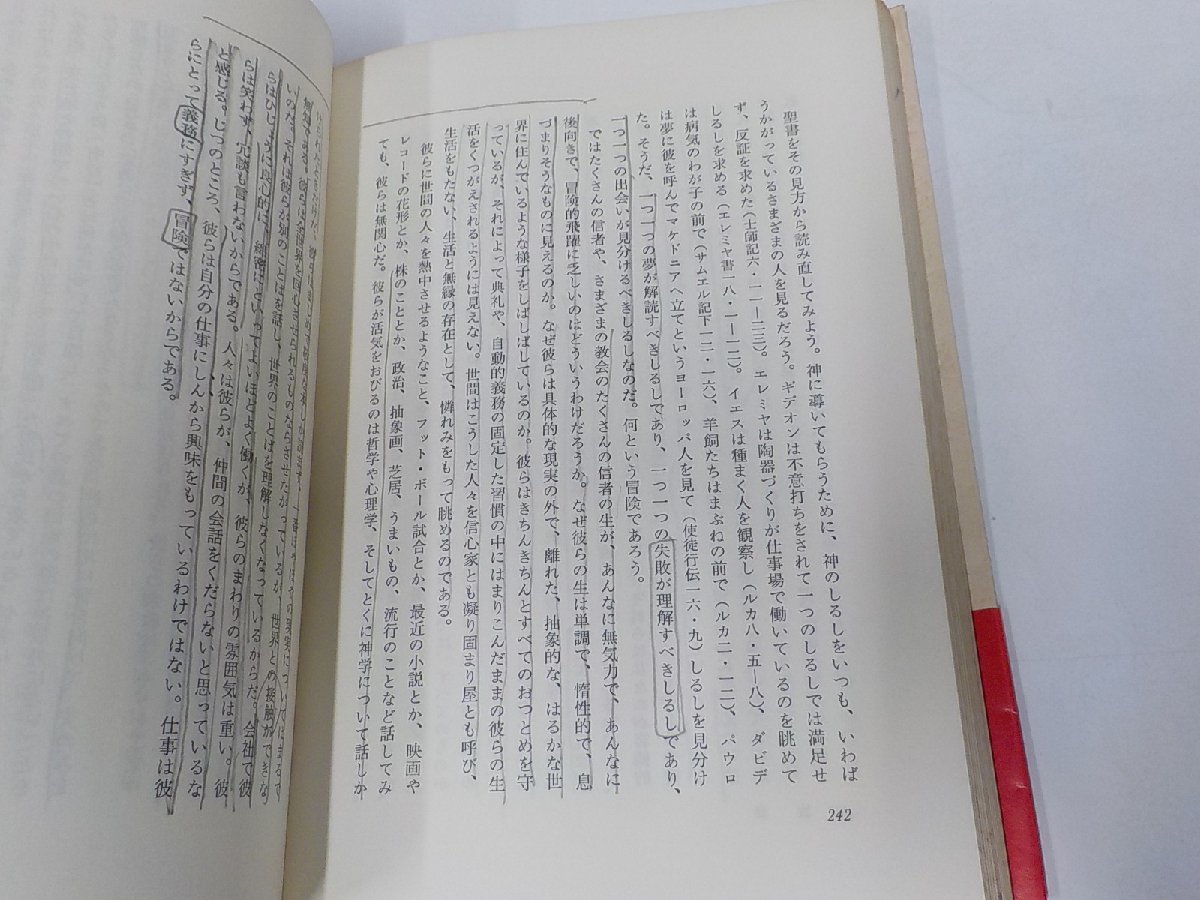 聖書をその見方から読み直してみよう。神に導いてもらうために、神のしるしをいつも、いわば
うかがっているさまざまの人を見るだろう。ギデオンは不意打ちをされて一つのしるしでは満足せ
ず、反証を求めた(士師記六・一一―二三)。エレミヤは陶器づくりが仕事場で働いているのを眺めて
しるしを求める(エレミヤ書一八・一―一二)。イエスは種まく人を観察し(ルカ八・五―八)、ダビデ
は病気のわが子の前で(サムエル記下一二・一六)、羊飼たちはまぶねの前で(ルカ二・一二)、パウロ
は夢に彼を呼んでマケドニアへ立てというヨーロッパ人を見て(使徒行伝一六・九)しるしを見分け
た。そうだ、一つ一つの夢が解読すべきしるしであり、一つ一つの失敗が理解すべきしるしであり、
一つ一つの出会いが見分けるべきしるしなのだ。何という冒険であろう。
ではたくさんの信者や、さまざまの教会のたくさんの信者の生が、あんなに無気力で、あんなに
後向きで、冒険的飛躍に乏しいのはどういうわけだろうか。なぜ彼らの生は単調で、惰性的で、息
づまりそうなものに見えるのか。なぜ彼らは具体的な現実の外で、離れた、抽象的な、はるかな世
界に住んでいるような様子をしばしばしているのか。彼らはきちんきちんとすべてのおつとめを守
っているが、それによって典礼や、自動的義務の固定した習慣の中にはまりこんだままの彼らの生
活をくつがえされるようには見えない。世間はこうした人々を信心家とも凝り固まり屋とも呼び、
生活をもたない、生活と無縁の存在として、憐れみをもって眺めるのである。
彼らに世間の人々を熱中させるようなこと、フット・ボール試合とか、最近の小説とか、映画や
レコードの花形とか、株のこととか、政治、抽象画、芝居、うまいもの、流行のことなど話してみ
ても、彼らは無関心だ。彼らが活気をおびるのは哲学や心理学、そしてとくに神学について話しか
242
無気である。彼らは全世界を回心させられるものならさせたがっているが、世界との接触ができな
いのだ。それは彼らが別のことばを話し、世界のことばを理解しなくなっているからだ。会社で彼
らはひじょうに良心的に、綿密にといってよいほどよく働くが、彼らのまわりの雰囲気は重い。彼
らは笑わず、冗談も言わないからである。人々は彼らが、仲間の会話をくだらないと思っているな
と感じる。じつのところ、彼らは自分の仕事にしんから興味をもっているわけではない。仕事は彼
らにとって義務にすぎず、冒険ではないからである。